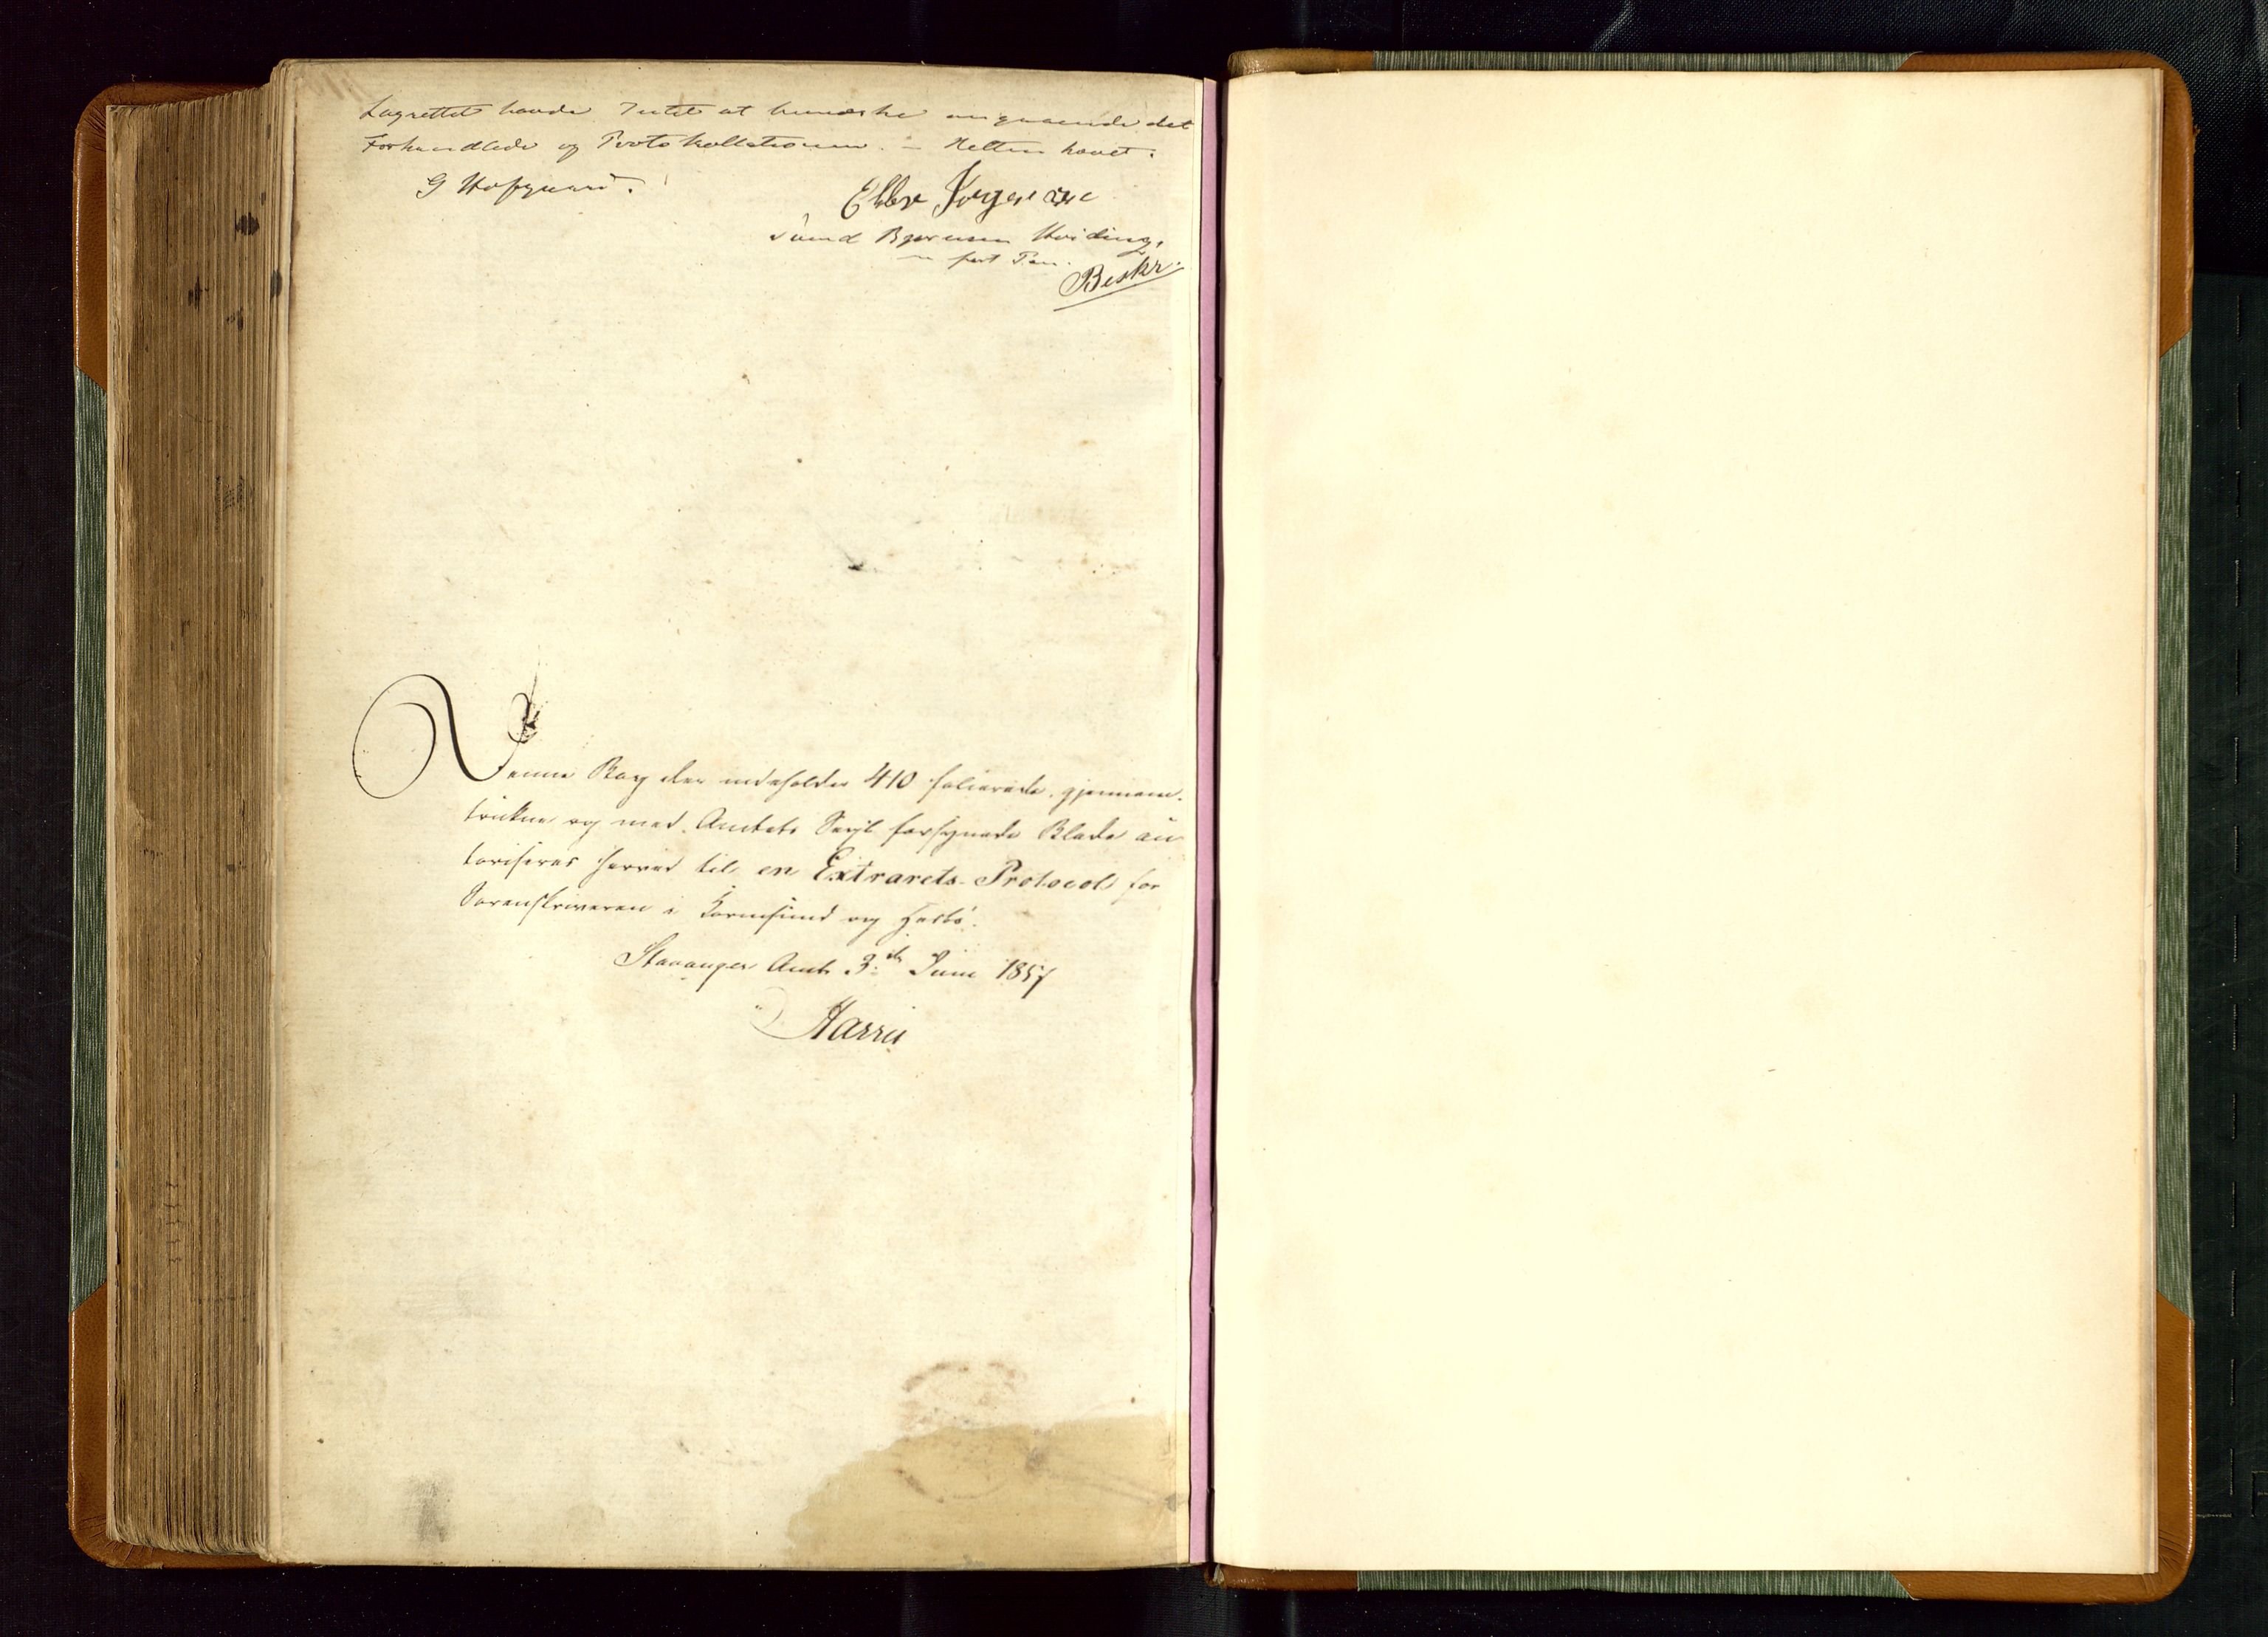 Lagrettet havde Intet at bemærke angaaende det
Forhandlede og Protokollationen. – Retten hævet.
G Hofgaard.
Ebbe
Svend Bjørnsen Hviding,
m paah Pen.
Beskr.
Denne Bog der indeholder 410 folierede, gjennem-
trukne og med Amtets Segl forsynede Blade au
toriseres herved til en Extrarets-Protocol for
Sorenskriveren i Karmsund og Hesbø.
Stavanger Amt 3:die Juni 1857
Harris